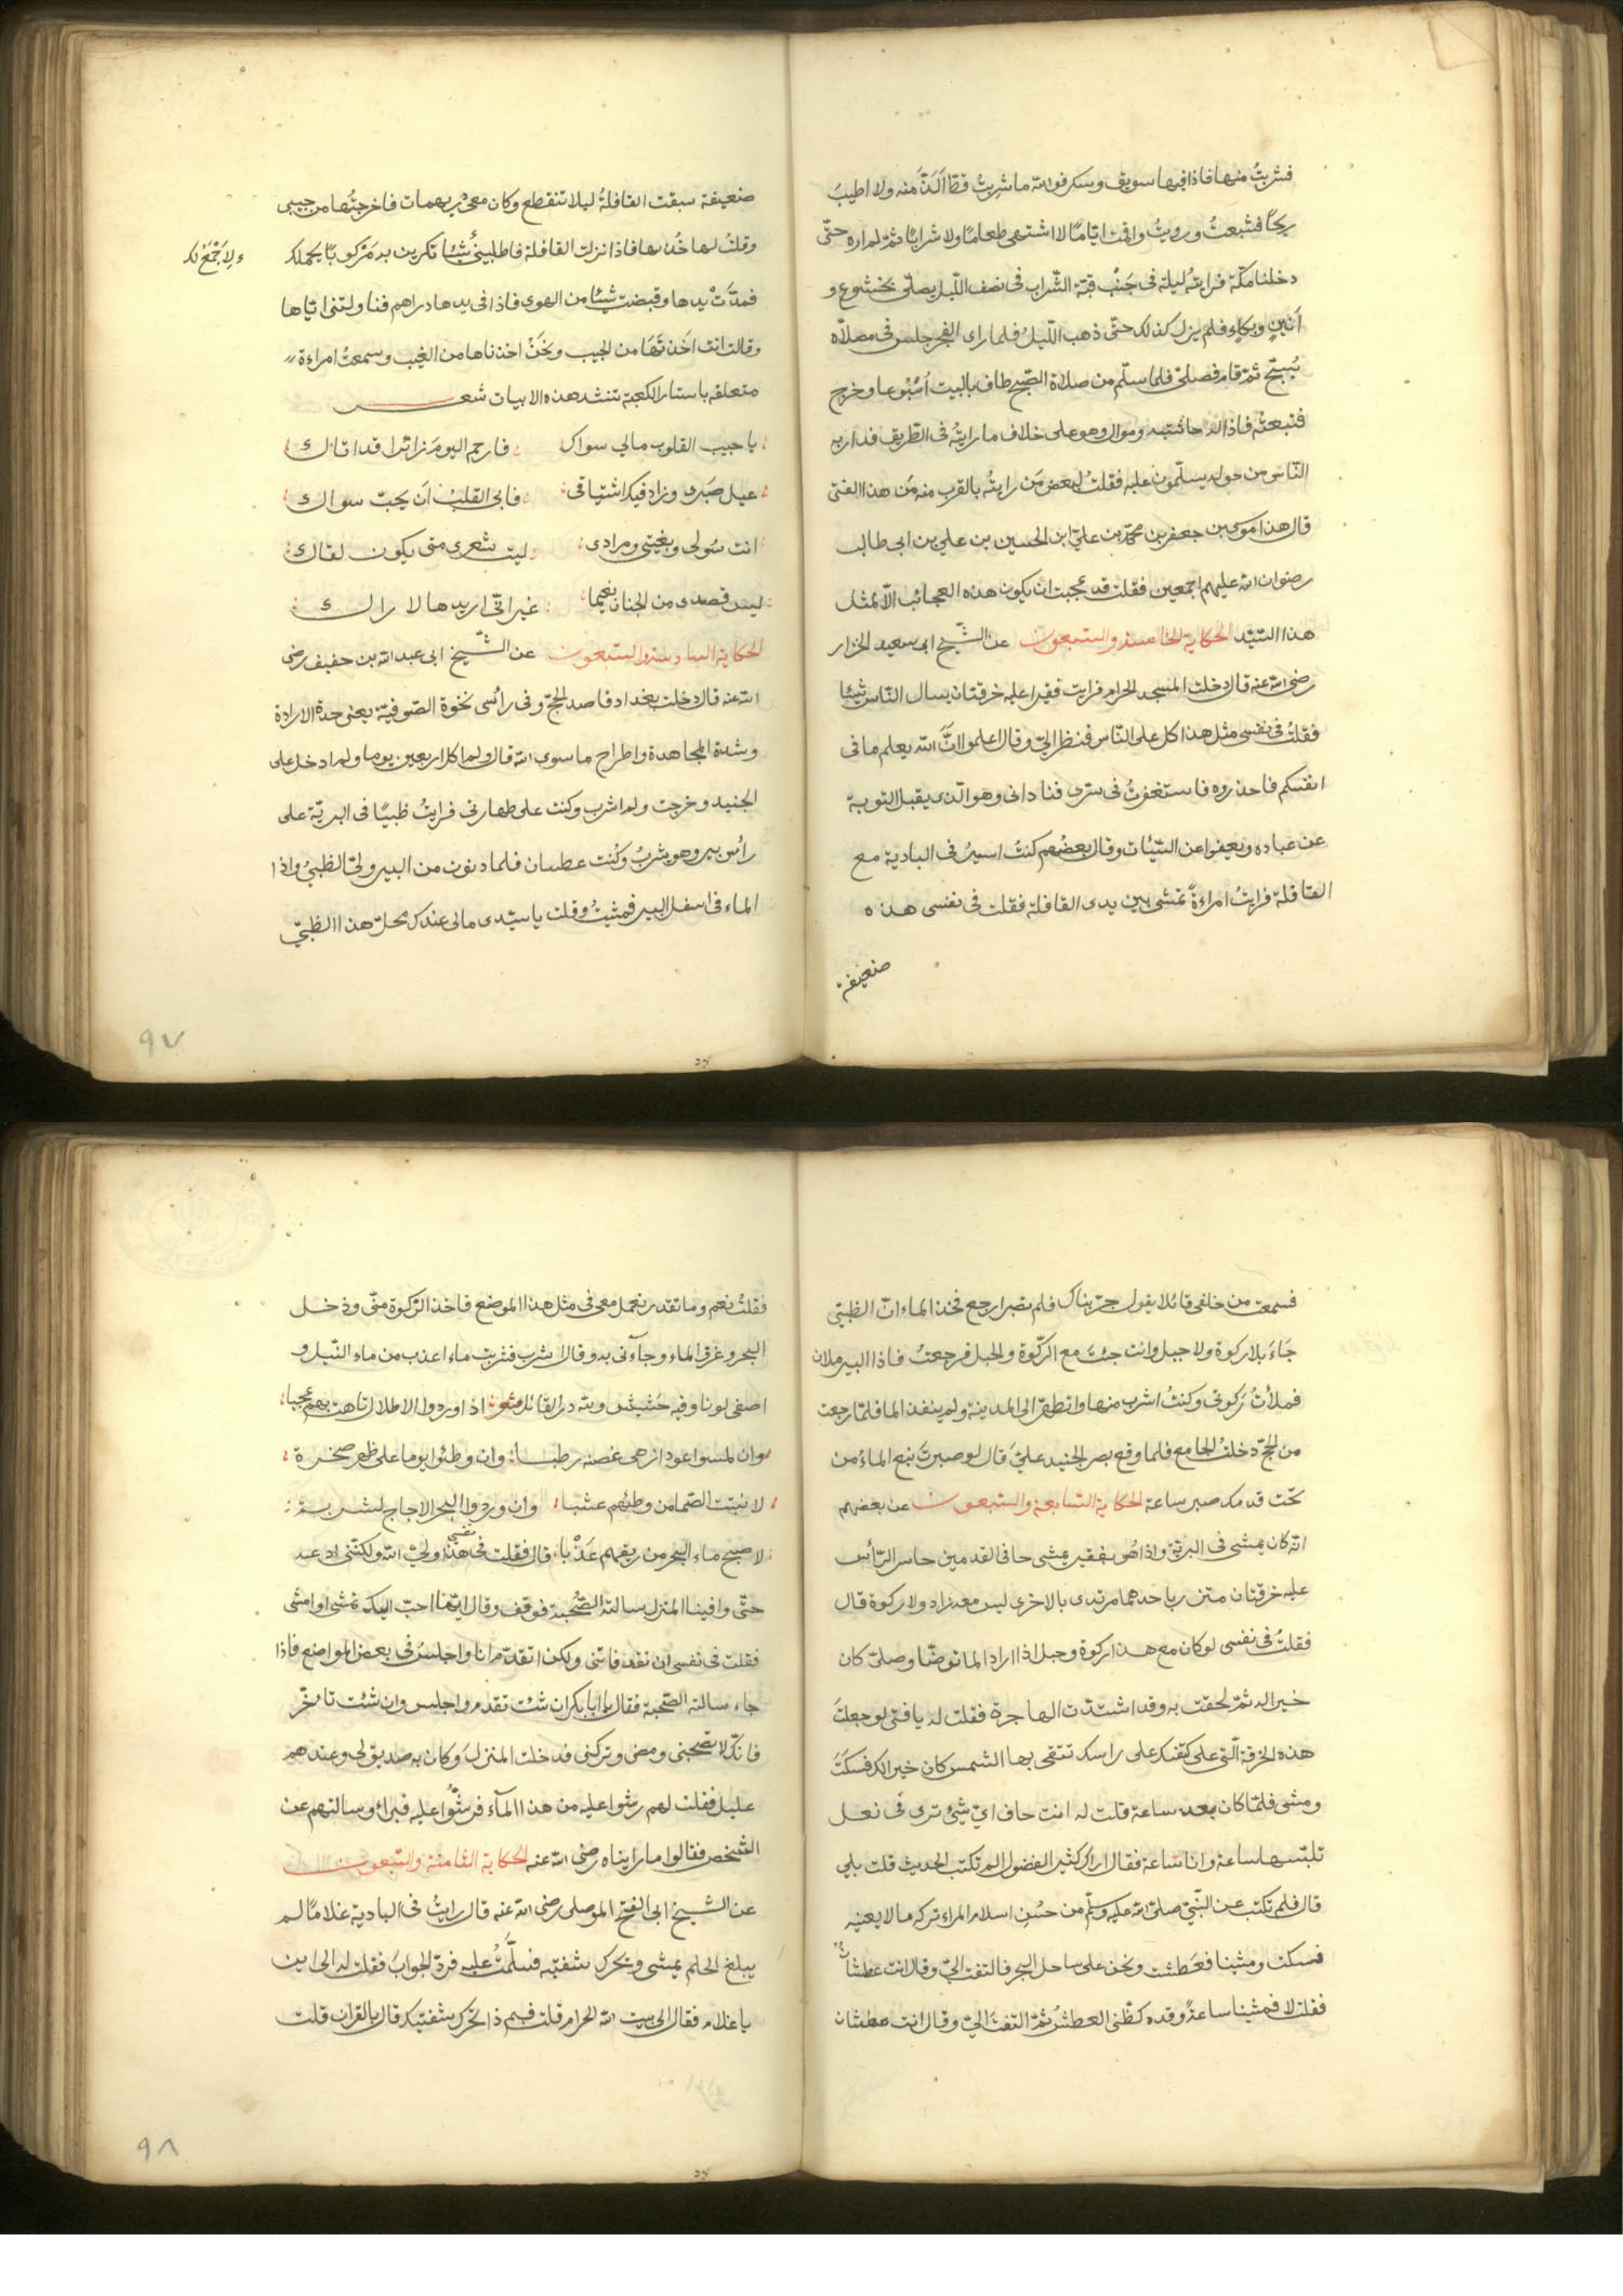 فشربتُ منها فاذا فيها سويق وسكر فوالله ما شربتُ قط الَذَّ منه ولا اطيبَ
ريحًا فشبعتُ ورويتُ واقمت ايّامًا لا اشتهى طعامًا ولا شرابًا ثمّ لم اره حتّى
دخلنا مكّة فرايته ليلة فى جَنْب قبّة الشّراب فى نصف اللّيل يصلّى بخشوع و
اَنينٍ وبكاءٍ فلم يزل كذلك حتّى ذهب اللّيلُ فلما راى الفجر جلس فى مصلّاه
يُسبّح ثمّ قام فصلّى فلما سلّم من صلاة الصّبح طاف بالبيت اُسْبُوعا وخرج
فتبعتُه فاذا له حاشية وموال وهو على خلاف ما رايتُه فى الطّريق فدار به
النّاس من حوله يسلّمون عليه فقلتُ لبعض مَن رايتُه بالقرب منه مَن هذا الفتى
قال هذا موسى بن جعفر بن محمّد بن علىّ ابن الحسين بن علي بن ابى طالب
رضوان الله عليهم اجمعين فقلت قد عجبت ان يكون هذه العجائب الّا لمثل
هذا السّيّد الحكاية الخامسة والسّبعون عن الشّيخ ابى سعيد الخزار
رضى الله عنه قال دخلت المسجد الحرام فرايت فقيرا عليه خرقتان يسال النّاس شيئا
فقلتُ فى نفسى مثل هذا كل على النّاس فنظر الىّ وقال اعلموا انَّ الله يعلم ما فى
انفسكم فاحذروه فاستغفرتُ فى سرّى فنادانى وهو الّذى يقبل التوبة
عن عباده ويعفوا عن السّيّئات وقال بعضُهم كنتُ اسيرُ فى البادية مع
القافلة فرايتُ امراءةً تمشى بين يدى القافلة فقلت فى نفسى هذه
ضعيفة
ضعيفة سبقت القافلةُ ليلا تنقطع وكان معى دريهمات فاخرجتُها من جيبى
وقلتُ لها خُذيها فاذا نزلت القافلة فاطلبينى شيئا تكرين به مَركوبًا يحملك
فمدَّتْ يدها وقبضت شيئا من الهوى فاذا فى يدها دراهم فناولتنى ايّاها
وقالت انت اَخذتَهَا من الجيب ونحَنُ اخذناها من الغيب وسمعتُ امراءة
متعلقة باستار الكعبة تنشد هذه الابيات شعر
يا حبيب القلوب مالي سواك فارحم اليومَ زائرا قد اتاك
عيل صَبرى وزاد فيك اشتياقى فابى القلبُ اَن يحبّ سواك
انت سُولى وبغيتى ومرادى ليت شعرى متى يكون لقاك
ليس قصدى من الجنان نعيما غير انّى اريدها لاراك
الحكاية السادسة والسّبعون عن الشّيخ ابى عبد الله بن حفيف رضى
الله عنه قال دخلت بغداد قاصد الحجّ وفى رأسى نخوة الصّوفيّة يعنى حدة الارادة
وشدة المجاهدة واطراح ما سوى الله قال ولم اكل اربعين يوما ولم ادخل على
الجنيد وخرجت ولم اشرب وكنت على طهارتى فرايتُ ظبيًا فى البريّة على
رأس بير وهو يشربُ وكُنت عطسان فلما دنوت من البير ولىّ الظبىُ واذا
الماء فى اسفل البير فمشيتُ وقلت يا سيّدى مالى عندك محلّ هذا الظبىّ
٩٧
فسمعت من خلفى قائلا يقول جرّبناك فلم تصبر ارجع فخذ الماء انّ الظبىّ
جَاءَ بلا ركوة ولا حبل وانت جئتَ مع الرّكوة والحبل فرجعتُ فاذا البير ملان
فملأتُ رَكوتى وكنتُ اشرب منها واتطهّر الى المدينة ولم ينفذ الما فلمّا رجعت
من الحجّ دخلتُ الجامع فلما وقع بصر الجنيد علىَّ قال لو صبرتَ نبع الماءُ من
تحت قدمك صبر ساعة الحكاية السّابعة والسّبعون عن بعضهم
انّه كان يمشى فى البريّة واذا هُو بفقير يمشى حافى القدمين حاسر الرّأس
عليه خرقتان متزر باحدهما مرتدى بالاخرى ليس معه زاد ولا ركوة قال
فقلتُ فى نفسى لو كان مع هذا ركوة وحبل اذا اراد الما توضّا وصلّى كان
خيرا له ثمّ لحقت به وقد اشتدّت الهاجرة فقلت له يا فتى لو جعلتَ
هذه الخرقة الّتى على كتفك على راسك تتقى بها الشمس كان خيرا لك فسكتَ
ومشى فلمّا كان بعد ساعة قلت له انت حاف ايّ شيئ ترى فى نعل
تلبسها ساعة وانا ساعة فقال اراك كثير الفضول الم تكتب الحديث قلت بلى
قال فلم تكتب عن النّبيّ صلّى الله عليه وسلّم من حُسْن اسلام المراء تركه ما لا يعنيه
فسكت ومشينا فعَطشت ونحن على ساحل البحر فالتفت الىّ وقال انت عطشانٌ
فقلت لا فمشينا ساعةً وقده كظّنى العطشُ ثمّ التفتَ الىّ وقال انت عطشان
فقلتُ نعم وما تقدر تعمل معى فى مثل هذا الموضع فاخذ الرّكوة منّى ودخل
البحر وغرف الماء وجآءنى به وقال اشرب فشربت ماء اعذب من ماء النّيل و
اصفى لونا وفيه حَشيش ولله در القائل شعر اذا وردوا الاطلال تاهت بهم عجبا
وان لمسوا عودا زهى غصنه رطبا وان وطئوا يوما على ظهر صخرة
لانبتت الصّما من وطئهم عشبا وان وردوا البحر الاجاج لشربة
لاصبح ماء البحر من ريقهم عَذْبا قال فقلت فى نفسى هذا ولىّ الله ولكنّنى ادعه
حتّى وافينا المنزل سالته الصّحبة فوقف وقال ايّهما احبّ اليك تمشى او امشى
فقلت فى نفسى ان تقدّم فاتنى ولكن اتقدّم انا واجلسُ فى بعض المواضع فاذا
جاء سالته الصّحبة فقال يا ابا بكر ان شئت تقدم واجلس وان شئت تاخّر
فانّك لا تصحبنى ومضى وتركنى فدخلت المنزل وكان به صديق لى وعندهم
عليل فقلت لهم رشوا عليه من هذا المآء فرشّوا عليه فبراء وسالتهم عن
الشّخص فقالوا ما رايناه رضى الله عنه الحكاية الثامنة والسّبعون
عن الشّيخ ابى الفتح الموصلى رضى الله عنه قال رايتُ فى البادية غلامًا لم
يبلغ الحلم يمشى ويحرك شفتيه فسلّمتُ عليه فردّ الجوابَ فقلت له الى اين
يا غلام فقال الى بيت الله الحرام قلت فبم ذا تحرّك شفتيك قال بالقرآن قلت
٩٨